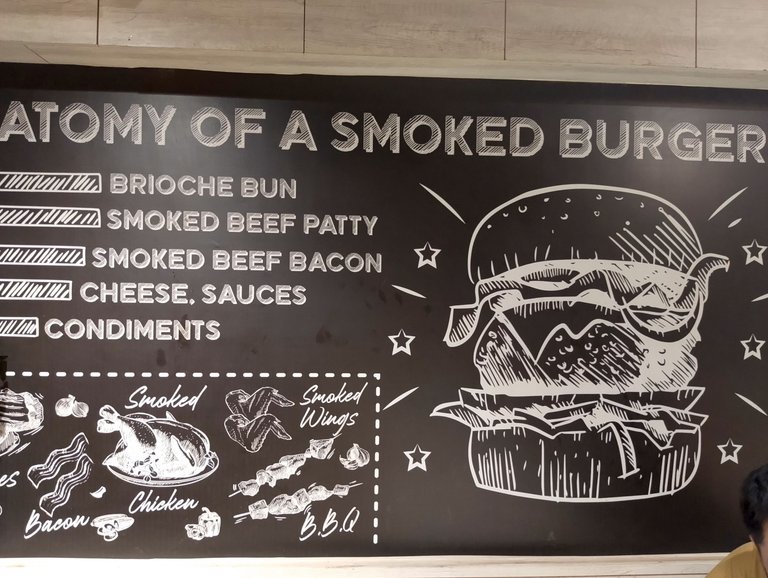 ATOMY OF A SMOKED BURGER
BRIOCHE BUN
SMOKED BEEF PATTY
SMOKED BEEF BACON
CHEESE, SAUCES
CONDIMENTS
Smoked
Chicken
Smoked
Wings
es
Bacon
B.B.Q